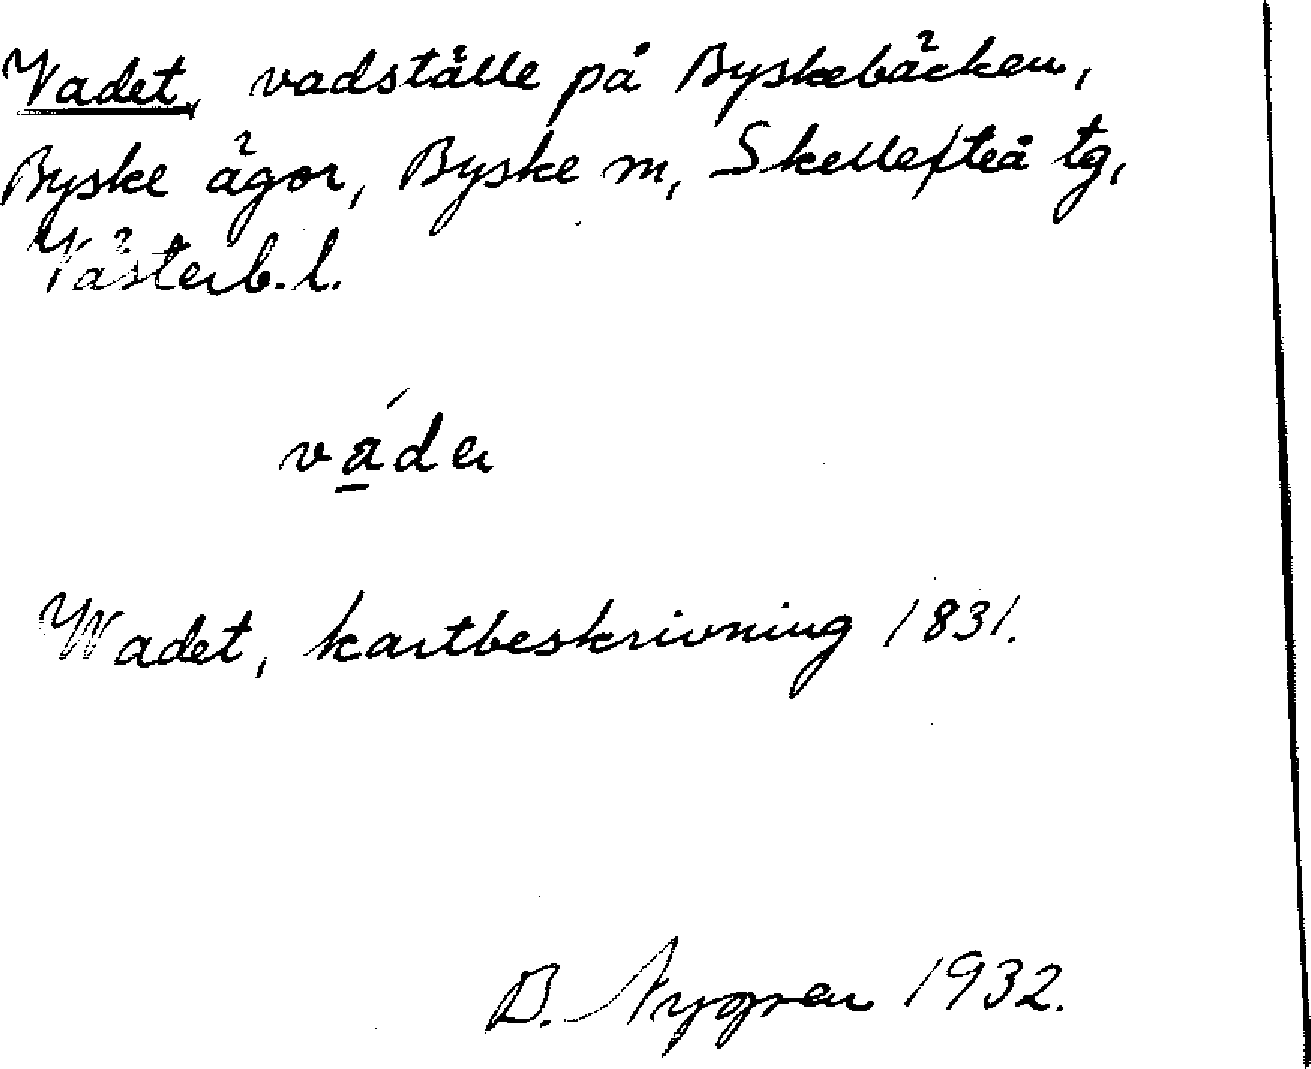 Vadet, vadställe på Byskebäcken,
Byske ägor, Byske m, Skellefteå tg,
Västerb. l.
vádɘ
Wadet, kartbeskrivning 1831.
B. Nygren 1932.